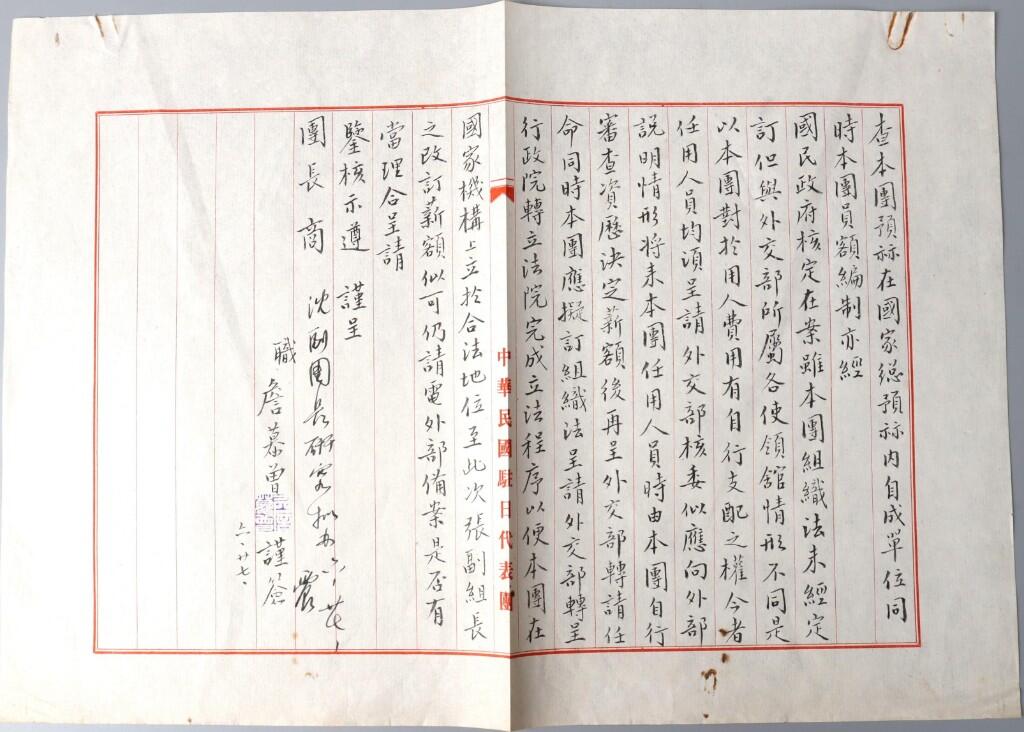 查本團預祘在國家總預祘內自成單位同
時本團員額編制亦經
國民政府核定在案雖本團組織法未經定
訂但與外交部所屬各使領舘情形不同是
以本團對於用人費用有自行支配之權今者
任用人員均須呈請外交部核委似應向外部
說明情形將來本團任用人員時由本團自行
審查資歷決定薪額後再呈外交部轉請任
命同時本團應擬訂組織法呈請外交部轉呈
行政院轉立法院完成立法程序以便本團在
中華民國駐日代表團
國家機構上立於合法地位至此次張副組長
之改訂薪額似可仍請電外部備案是否有
當理合呈請
鑒核示遵 謹呈
團長商
沈副團長研究擬办 震 六 廿七
職 詹慕曾 謹簽
六、廿七、